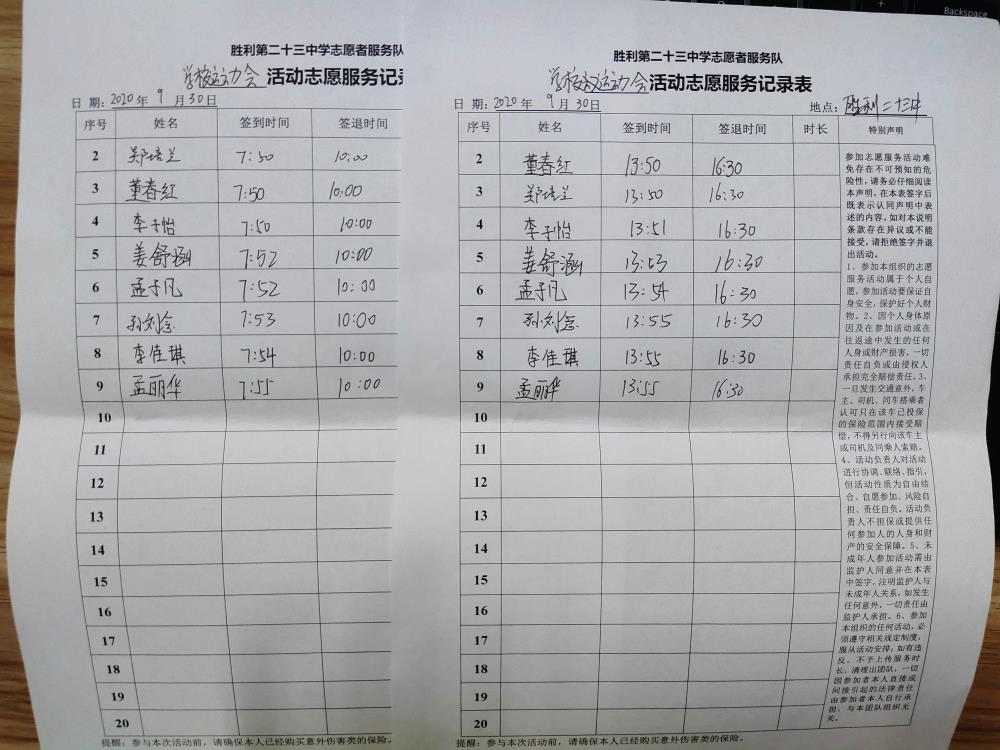 Backspace
胜利第二十三中学志愿者服务队
学校运动会活动志愿服务记录
日 期：2020 年 9 月 30 日
序号 姓名 签到时间 签退时间
2 郑培兰 7:50 10:00
3 董春红 7:50 10:00
4 李子怡 7:50 10:00
5 姜舒涵 7:52 10:00
6 孟子凡 7:52 10:00
7 孙刘念 7:53 10:00
8 李佳琪 7:54 10:00
9 孟丽华 7:55 10:00
10
11
12
13
14
15
16
17
18
19
20
提醒：参与本次活动前，请确保本人已经购买意外伤害类的保险。
胜利第二十三中学志愿者服务队
学校运动会活动志愿服务记录表
日 期：2020 年 9 月 30 日 地点：胜利二十三中
序号 姓名 签到时间 签退时间 时长 特别声明
2 董春红 13:50 16:30
3 郑培兰 13:50 16:30
4 李子怡 13:51 16:30
5 姜舒涵 13:53 16:30
6 孟子凡 13:54 16:30
7 孙刘念 13:55 16:30
8 李佳琪 13:55 16:30
9 孟丽华 13:55 16:30
10
11
12
13
14
15
16
17
18
19
20
参加志愿服务活动难
免存在不可预知的危
险性，请务必仔细阅读
本声明，在本表签字后
既表示认同声明中表
述的内容。如对本说明
条款存在异议或不能
接受，请拒绝签字并退
出活动。
1、参加本组织的志愿
服务活动属于个人自
愿，参加活动要保证自
身安全，保护好个人财
物。2、因个人身体原
因及在参加活动或在
往返途中发生的任何
人身或财产损害，一切
责任自负或由侵权人
承担完全赔偿责任。3、
一旦发生交通意外，车
主、司机、同车搭乘者
认可只在该车已投保
的保险范围内接受赔
偿，不得另行向该车主
或司机及同乘人索赔。
4、活动负责人对活动
进行协调、联络、指引，
但活动性质为自由结
合、自愿参加、风险自
担、责任自负。活动负
责人不担保或提供任
何参加人的人身和财
产的安全保障。5、未
成年人参加活动需由
监护人同意并在本表
中签字，注明监护人与
未成年人关系，如发生
任何意外，一切责任由
监护人承担。6、参加
本组织的任何活动，必
须遵守相关规定制度，
服从活动安排；如有违
反，不予上传服务时
长，清理出团队，一切
因参加者本人直接或
间接引起的法律责任
由参加者本人自行承
担，与本团队组织无
关。
提醒：参与本次活动前，请确保本人已经购买意外伤害类的保险。